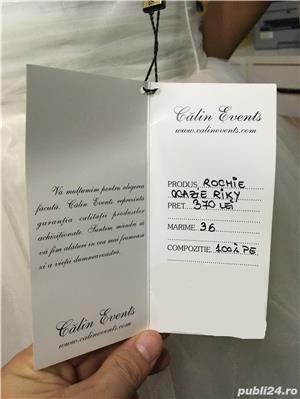 Vă mulțumim pentru alegerea
făcută. Călin Events reprezintă
garanția calității produselor
achiziționate. Suntem mândri să
vă fim alături în cea mai frumoasă
zi a vieții dumneavoastră.
Călin Events
www.calinevents.com
Călin Events
www.calinevents.com
PRODUS, ROCHIE
OCAZIE RIKY
PRET. 370 LEI
MARIME. 36
COMPOZITIE. 100% PE.
publi24.ro